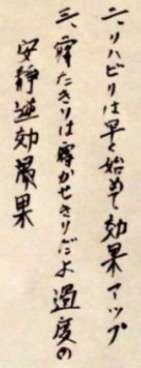 二、リハビリは早く始めて効果アップ
三、寝たきりは寝かせきりだよ過度の
安静逆効果